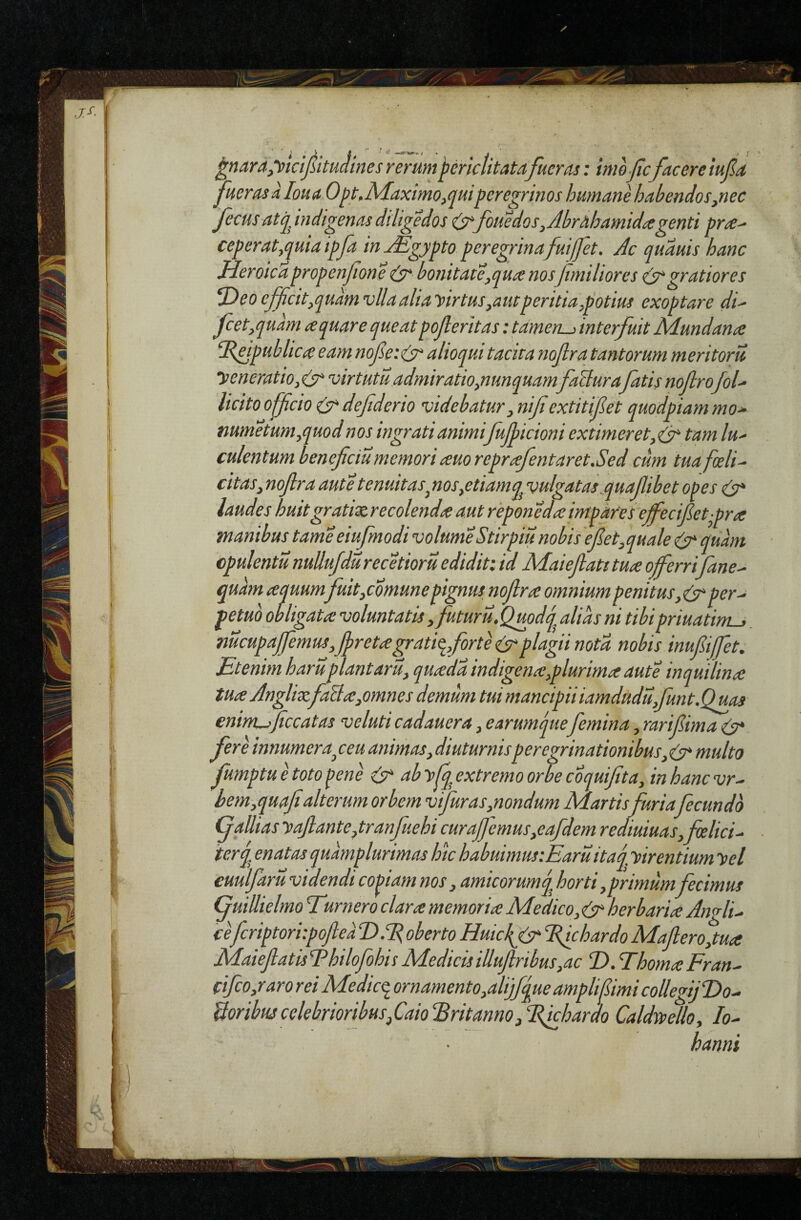 gnara,vicißitudines rerum periclitata fueras: imò sic facere iußa
fueras à Ioua Opt.Maximo,qui peregrinos humanè habendos,nec
secus atq; indigenas diligēdos & fouēdos,Abrahamidæ genti præ-
ceperat,quia ipsa in Ægypto peregrina fuisset. Ac quāuis hanc
Heroicā propensionē & bonitatē,quæ nos similiores & gratiores
Deo efficit,quàm vlla alia virtus,aut peritia,potius exoptare di-
scet,quàm æquare queat posteritas: tamen interfuit Mundanæ
Reipublicæ eam noße:& alioqui tacita nostra tantorum meritorū
veneratio,& virtutū admiratio,nunquam factura satis nostro sol-
licito officio & desiderio videbatur, nisi extitißet quodpiam mo-
numētum,quod nos ingrati animi suspicioni extimeret,& tam lu-
culentum beneficiū memori æuo repræsentaret.Sed cùm tua fœli-
citas, nostra autē tenuitas, nos,etiamq; vulgatas quaslibet opes &
laudes huit gratiæ recolendæ aut reponēdæ impares effecißet,præ
manibus tamē eiusmodi volumē Stirpiū nobis eßet,quale & quàm
opulentū nullusdū recētiorū edidit: id Maiestati tuæ offerri sane-
quàm æquum fuit,cōmune pignus nostræ omnium penitus,& per-
petuò obligatæ voluntatis, futurū.Quodq; aliàs ni tibi priuatim
nūcupassemus,spretæ gratię,fortè & plagii notā nobis inußisset.
Etenim harū plantarū, quædā indigenæ,plurimæ autē inquilinæ
tuæ Angliæ factæ,omnes demùm tui mancipii iamdudū,sunt.Quas
enim siccatas veluti cadauera, earumque semina, rarißima &
ferè innumera,ceu animas, diuturnis peregrinationibus,& multo
sumptu è toto penè & ab vsq; extremo orbe cōquisita, in hanc vr-
bem,quasi alterum orbem visuras,nondum Martis furia secundò
Gallias vastante,transuehi curassemus,easdem rediuiuas, fœlici-
terq; enatas quàmplurimas hîc habuimus:Earū itaq; virentium vel
euulsarū videndi copiam nos, amicorumq; horti,primùm fecimus
Guillielmo Turnero claræ memoriæ Medico,& herbariæ Angli-
cè scriptori:posteà D.Roberto Huick,& Richardo Mastero,tuæ
Maiestatis Philosophis Medicis illustribus,ac D. Thomæ Fran-
cisco,raro rei Medicę ornamento,alijsque amplißimi collegij Do-
ctoribus celebrioribus,Caio Britanno, Richardo Caldwello, Io-
hanni